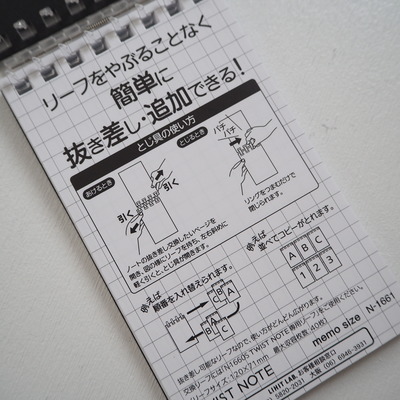 リーフをやぶることなく
簡単に
抜き差し・追加できる!
とじ具の使い方
あけるとき
引く
引く
ノートの抜き差し交換したいページを
開き、図の様にリーフを持ち、左右斜めに
軽く引くと、とじ具が開きます。
とじるとき
パチ
パチ
リングをつまむだけで
閉じられます。
例えば
順番を入れ替えられます。
A
B
C
C
B
A
例えば
並べてコピーがとれます。
A B C
1 2 3
抜き差し可能なリーフなので、使い方がどんどん広がります。
交換リーフには「N1660S TWIST NOTE 専用リーフ」をご使用ください。
リーフサイズ:120×71mm 最大収容枚数:40枚
TWIST NOTE
memo size N-1661
LIHIT LAB. お客様相談窓口
5820-2031 大阪 (06) 6946-3931